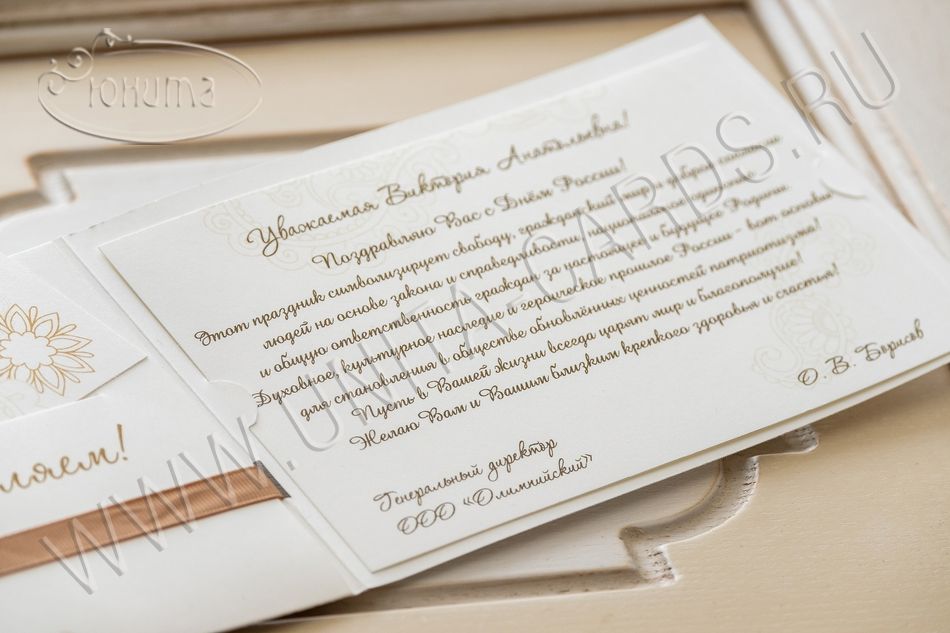 Юнита
Уважаемая Виктория Анатольевна!
Поздравляю Вас с Днём России!
Этот праздник символизирует свободу, гражданский мир и доброе согласие
людей на основе закона и справедливости, национальное единение
и общую ответственность граждан за настоящее и будущее Родины.
Духовное, культурное наследие и героическое прошлое России - вот основы
для становления в обществе обновлённых ценностей патриотизма!
Пусть в Вашей жизни всегда царят мир и благополучие!
Желаю Вам и Вашим близким крепкого здоровья и счастья!
Генеральный директор
ООО «Олимпийский»
О. В. Борисов
ляем!
WWW.UNITA-CARDS.RU